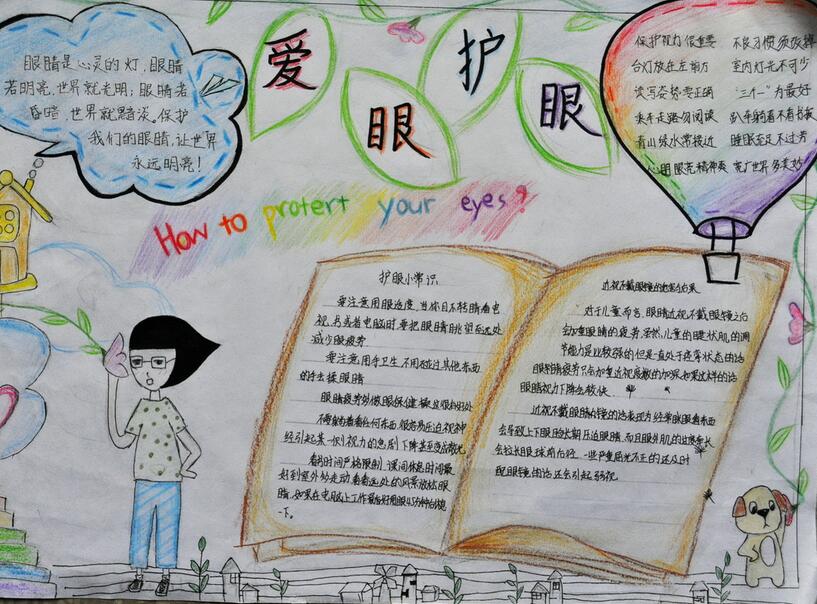 眼睛是心灵的灯,眼睛
若明亮,世界就光明;眼睛若
昏暗,世界就黯淡。保护
我们的眼睛,让世界
永远明亮!
爱护
眼眼
How to protert your eyes?
保护视力很重要 不良习惯须改掉
台灯放在左前方 室内灯光不可少
读写姿势要正确 "三个一"为最好
乘车走路勿阅读 趴车躺着不看书报
青山绿水常接近 睡眠至足不过劳
心明眼亮精神爽
护眼小常识
要注意用眼适度,当你目不转睛看电
视,或者看电脑时,要把眼睛眺望远处
减少眼疲劳
要注意用手卫生,不用碰过其他东西
的手去揉眼睛
眼睛疲劳时做眼保健操
经引起某一例视力的急剧下降甚至
看的时间严格限制,课间休息时间最
好到室外走动看看远处的风景放松眼
睛,如果在电脑上工作最好
一下。
近视不戴眼镜的
对于儿童而言,眼睛近视不戴眼镜之后
会加重眼睛的疲劳,虽然儿童的睫状肌的调
节能力是比较强的但是一直处于疲劳状态的话
眼睛视力下降会较快
近视不戴眼睛的镜的话表现为经常眯眼看东西
会导致上下眼睑长期压迫眼睛,而且眼外肌的过度
会拉长眼球前后径,一些严重屈光不正的还及时
配眼镜的话还会引起弱视